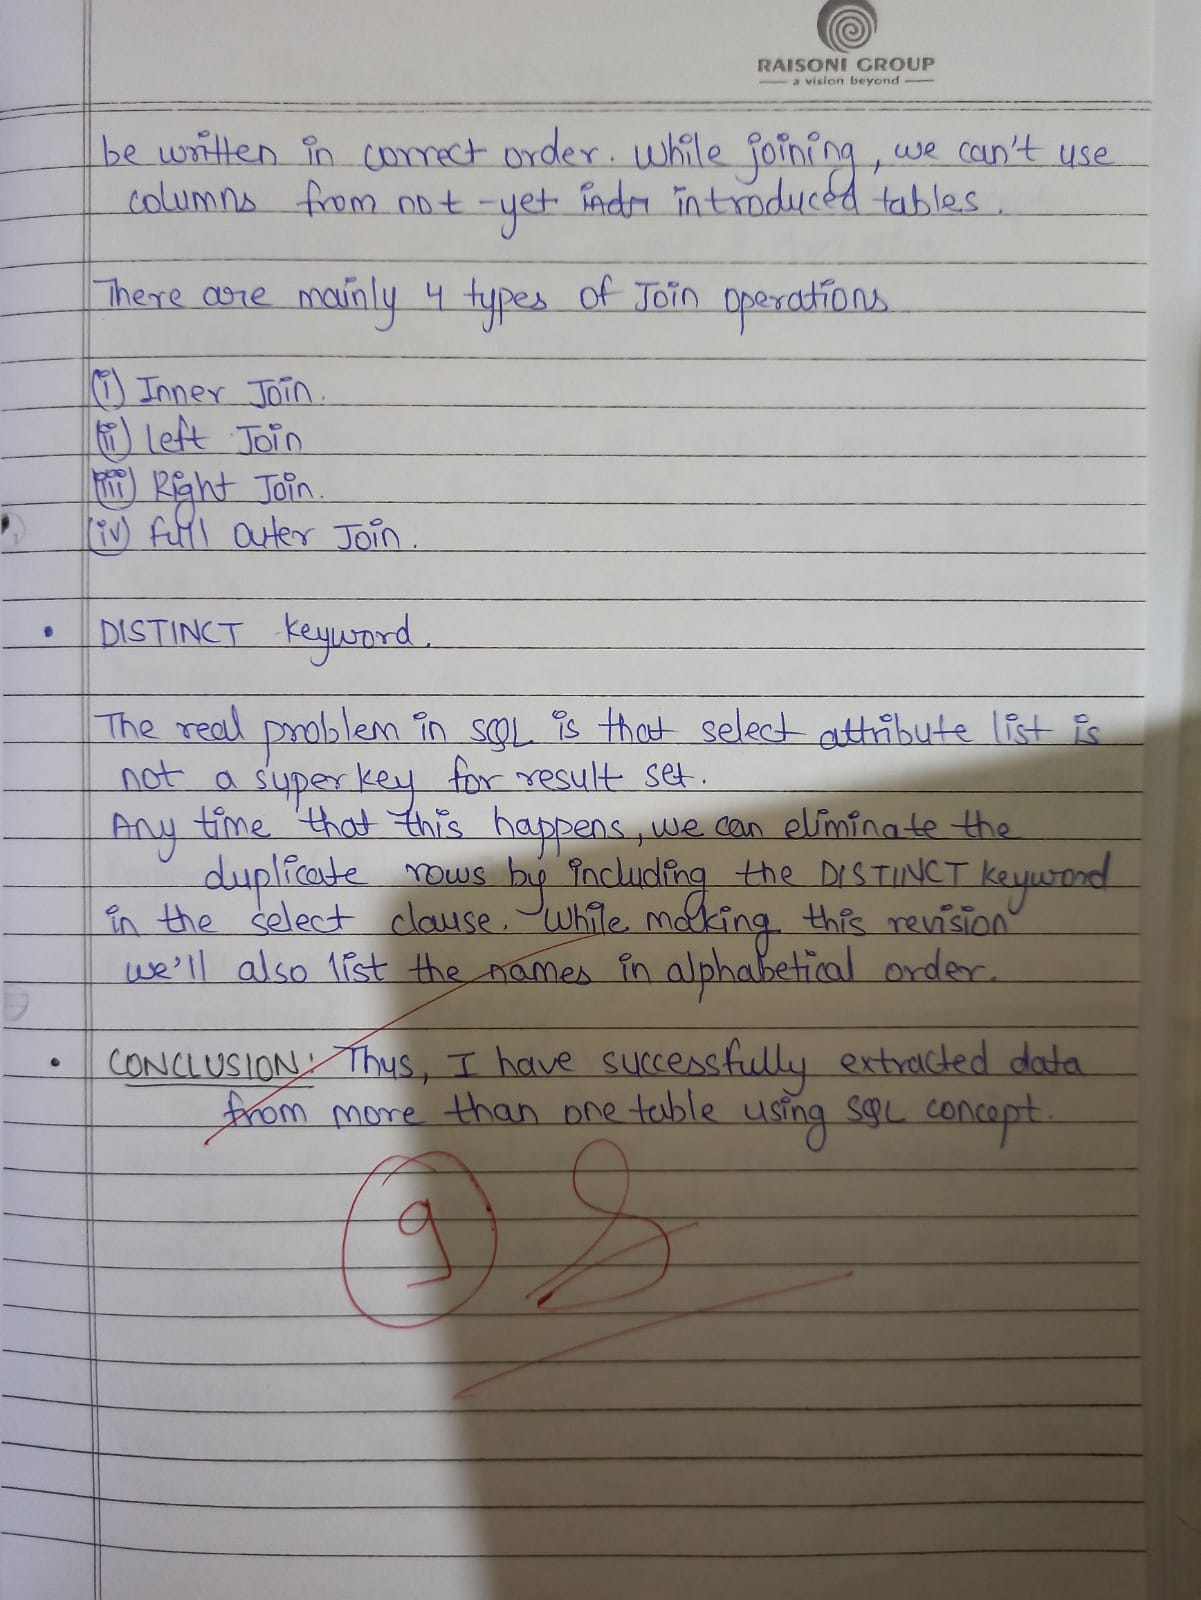 RAISONI GROUP
a vision beyond
be written in correct order. While joining, we can't use
columns from not-yet introduced tables.
There are mainly 4 types of Join operations
(i) Inner Join.
(ii) Left Join
(iii) Right Join.
(iv) Full Outer Join.
• DISTINCT keyword.
The real problem in SQL is that select attribute list is
not a superkey for result set.
Any time that this happens, we can eliminate the
duplicate rows by including the DISTINCT keyword
in the select clause. While making this revision
we'll also list the names in alphabetical order.
• CONCLUSION: Thus, I have successfully extracted data
from more than one table using SQL concept.
9